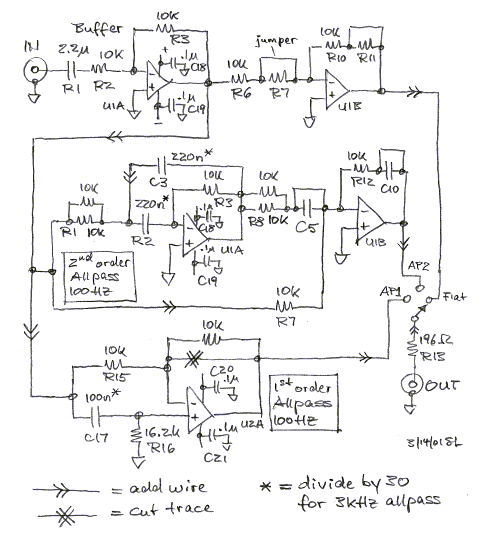 Buffer
IN
2.2µ
10K
R1
R2
10K
R3
+
.1µ
C18
−
+
U1A
.1µ
C19
−
10K
R6
jumper
R7
10K
R10
R11
−
+
U1B
220n*
C3
10K
R3
220n*
R2
10K
R1
10K
.1µ
C18
−
+
U1A
.1µ
C19
10K
R8
10K
C5
10K
R12
C10
−
+
U1B
2nd order
Allpass
100Hz
10K
R7
AP2
AP1
Flat
196Ω
R13
OUT
10K
10K
R15
100n*
C17
16.2K
R16
C20
.1µ
−
+
U2A
.1µ
C21
1st order
Allpass
100Hz
3/14/01 SL
= add wire
= cut trace
* = divide by 30
for 3KHz allpass